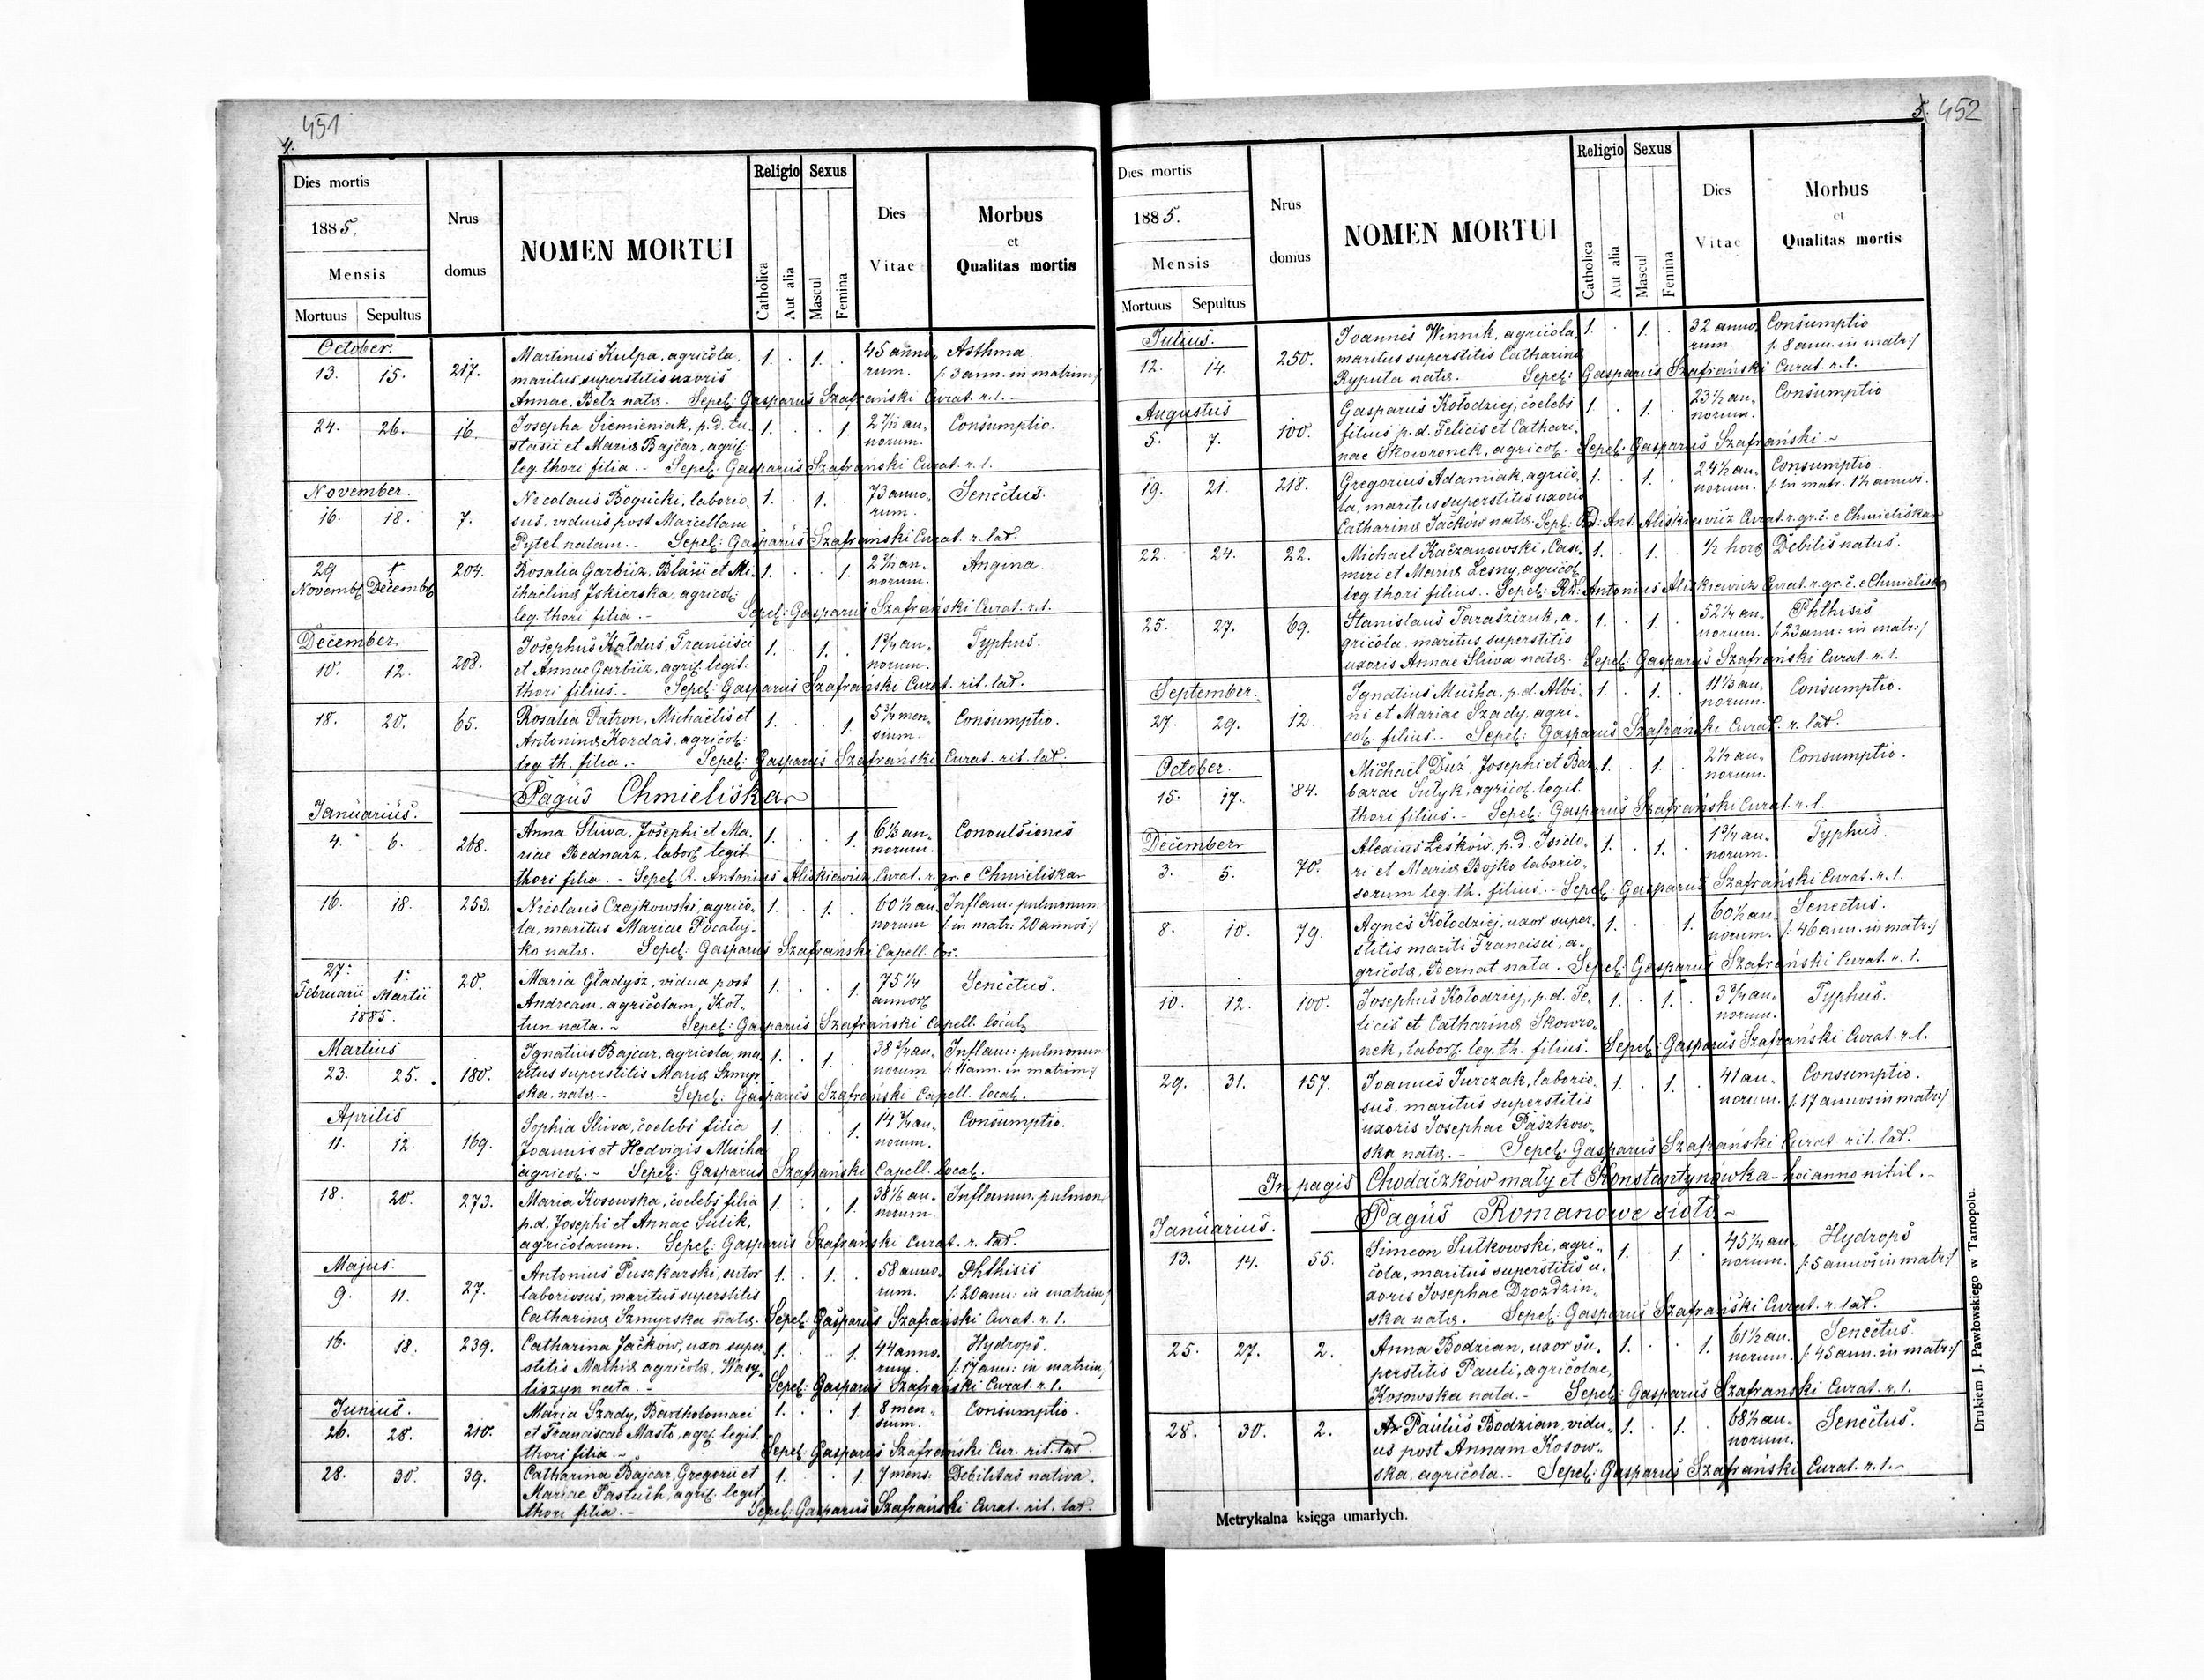 451
4.
Dies mortis
1885.
Mensis
Mortuus Sepultus
Nrus
domus
NOMEN MORTUI
Religio Sexus
Catholica
Aut alia
Mascul
Femina
Dies
Vitae
Morbus
et
Qualitas mortis
October.
13. 15. 217. Martinus Kulpa, agricola, 1. . 1. . 45 anno- Asthma.
maritus superstitis uxoris rum. /: 3 ann. in matrim:/
Annae, Betz natæ. Sepel: Gasparus Szafrański Curat. r. l.
24. 26. 16. Josepha Siemieniak, p. d. Eu- 1. . . 1. 2 7/12 an- Consumptio.
stasii et Mariæ Bajcar, agric. norum.
leg. thori filia. Sepel: Gasparus Szafrański Curat. r. l.
November.
16. 18. 7. Nicolaus Bogucki, laborio- 1. . 1. . 73 anno- Senectus.
sus, viduus post Marcellam rum.
Pytel natam. Sepel: Gasparus Szafrański Curat. r. lat.
29 1. 204. Rosalia Garbicz, Blasii et Mi- 1. . . 1. an- Angina.
Novemb. Decemb. chaelinæ Iskierska, agricol: norum.
leg. thori filia. Sepel: Gasparus Szafrański Curat. r. l.
December
10. 12. 208. Josephus Kaldus, Francisci 1. . 1. . 1 3/4 an- Typhus.
et Annae Garbicz, agric. legit: norum.
thori filius. Sepel: Gasparus Szafrański Curat. rit. lat.
18. 20. 65. Rosalia Patron, Michaëlis et 1. . . 1. men- Consumptio.
Antoninæ Kordas, agricol: sium.
leg. th. filia. Sepel: Gasparus Szafrański Curat. rit. lat.
Pagus Chmieliska
Januarius.
4. 6. 268. Anna Sliwa, Josephi et Ma- 1. . . 1. an- Convulsiones
riae Bednarz, labor. legit. norum.
thori filia. Sepel. R. Antonius Aliskiewicz, Curat. r. gr. e Chmieliska
16. 18. 253. Nicolaus Czajkowski, agrico- 1. . 1. . 60 1/2 an- Inflam: pulmonum
la, maritus Mariae Pocaluj- norum /: in matr: 20 annos:/
ko natæ. Sepel: Gasparus Szafrański Capell. loc.
27. 1. 20. Maria Gladysz, vidua post 1. . . 1. 75 1/4 Senectus.
Februarii Martii Andream, agricolam, Kol- annor.
1885. tun nata. Sepel: Gasparus Szafrański Capell. local.
Martius
23. 25. 180. Ignatius Bajcar, agricola, ma- 1. . 1. . an- Inflam: pulmonum
ritus superstitis Mariæ Szmyr- norum /: 11 ann. in matrim:/
ska, natæ. Sepel: Gasparus Szafrański Capell. local.
Aprilis
11. 12 169. Sophia Sliwa, coelebs filia 1. . . 1. an- Consumptio.
Joannis et Hedvigis Mucha norum.
agricol. Sepel: Gasparus Szafrański Capell. local.
18. 20. 273. Maria Kosowska, coelebs filia 1. . . 1. an- Inflamm. pulmon.
p. d. Josephi et Annae Sulik, norum.
agricolarum. Sepel: Gasparus Szafrański Curat. r. lat.
Majus.
9. 11. 27. Antonius Puszkarski, sutor 1. . 1. . 58 anno- Phthisis
laboriosus, maritus superstitis rum. /: 20 ann: in matrim:/
Catharinæ Szmyrska natæ. Sepel: Gasparus Szafrański Curat. r. l.
16. 18. 239. Catharina Jacków, uxor super- 1. . . 1. 44 anno- Hydrops.
stitis Mathiæ agricolæ, Wasy- rum. /: 17 ann: in matrim:/
liszyn nata. Sepel: Gasparus Szafrański Curat. r. l.
Junius.
26. 28. 210. Maria Szady, Bartholomaei 1. . . 1. 8 men- Consumptio.
et Franciscae Masto, agr. legit. sium.
thori filia. Sepel. Gasparus Szafrański Cur. rit. lat.
28. 30. 39. Catharina Bajcar, Gregorii et 1. . . 1. 7 mens: Debilitas nativa.
Mariae Pastuch, agric. legit.
thori filia. Sepel: Gasparus Szafrański Curat. rit. lat.
5. 452
Dies mortis
1885.
Mensis
Mortuus Sepultus
Nrus
domus
NOMEN MORTUI
Religio Sexus
Catholica
Aut alia
Mascul
Femina
Dies
Vitae
Morbus
et
Qualitas mortis
Julius.
12. 14. 250. Joannes Winnik, agricola, 1. . 1. . 32 anno- Consumptio
maritus superstitis Catharinæ rum. /: 8 ann. in matr:/
Ryputa natæ. Sepel: Gasparus Szafrański Curat. r. l.
Augustus
5. 7. 100. Gasparus Kołodziej, coelebs 1. . 1. . 23 1/2 an- Consumptio
filius p. d. Felicis et Cathari- norum.
nae Skowronek, agricol. Sepel: Gasparus Szafrański
19. 21. 218. Gregorius Adamiak, agrico- 1. . 1. . 24 1/2 an- Consumptio.
la, maritus superstitis uxoris norum. /: In matr. 1 1/2 annos.
Catharinæ Jacków natæ. Sepel: RD: Ant: Aliskiewicz Curat. r. gr. c. e Chmieliska
22. 24. 22. Michaël Kaczanowski, Casi- 1. . 1. . 1/2 horæ Debilis natus.
miri et Mariæ Lesny, agricol.
leg. thori filius. Sepel: RD: Antonius Aliskiewicz Curat. r. gr. c. e Chmieliska
25. 27. 69. Stanislaus Tarasziuk, a- 1. . 1. . 52 1/4 an- Phthisis
gricola, maritus superstitis norum. /: 23 ann: in matr:/
uxoris Annae Sliwa natæ. Sepel: Gasparus Szafrański Curat. r. l.
September.
27. 29. 12. Ignatius Mucha, p. d. Albi- 1. . 1. . an- Consumptio.
ni et Mariae Szady, agri- norum.
col. filius. Sepel: Gasparus Szafrański Curat. r. lat.
October.
15. 17. 84. Michaël Duż, Josephi et Bar- 1. . 1. . 2 1/2 an- Consumptio.
barae Sutyk, agricol. legit. norum.
thori filius. Sepel: Gasparus Szafrański Curat. r. l.
December
3. 5. 70. Alexius Leśków, p. d. Isido- 1. . 1. . 1 3/4 an- Typhus.
ri et Mariæ Bojko laborio- norum.
sorum leg. th. filius. Sepel: Gasparus Szafrański Curat. r. l.
8. 10. 79. Agnes Kołodziej, uxor super- 1. . . 1. 60 1/2 an- Senectus.
stitis mariti Francisci, a- norum. /: 46 ann. in matr:/
gricolæ, Bernat nata. Sepel: Gasparus Szafrański Curat. r. l.
10. 12. 100. Josephus Kołodziej, p. d. Fe- 1. . 1. . 3 3/4 an- Typhus.
licis et Catharinæ Skowro- norum.
nek, labor. leg. th. filius. Sepel: Gasparus Szafrański Curat. r. l.
29. 31. 157. Joannes Jurczak, laborio- 1. . 1. . 41 an- Consumptio.
sus, maritus superstitis norum. /: 17 annos in matr:/
uxoris Josephae Paszkow-
ska natæ. Sepel: Gasparus Szafrański Curat rit. lat.
In pagis Chodaczków mały et Konstantynówka hoc anno nihil.
Pagus Romanowe siolo
Januarius.
13. 14. 55. Simeon Sutkowski, agri- 1. . 1. . 45 1/4 an- Hydrops
cola, maritus superstitis u- norum. /: 5 annos in matr:/
xoris Josephae Drozdzin-
ska natæ. Sepel: Gasparus Szafrański Curat. r. lat.
25. 27. 2. Anna Bodzian, uxor su- 1. . . 1. 61 1/2 an- Senectus.
perstitis Pauli, agricolae, norum. /: 45 ann. in matr:/
Kosowska nata. Sepel: Gasparus Szafranski Curat. r. l.
28. 30. 2. Paulus Bodzian, vidu- 1. . 1. . 68 1/2 an- Senectus.
us post Annam Kosow- norum.
ska, agricola. Sepel: Gasparus Szafrański Curat. r. l.
Metrykalna księga umarłych.
Drukiem J. Pawłowskiego w Tarnopolu.